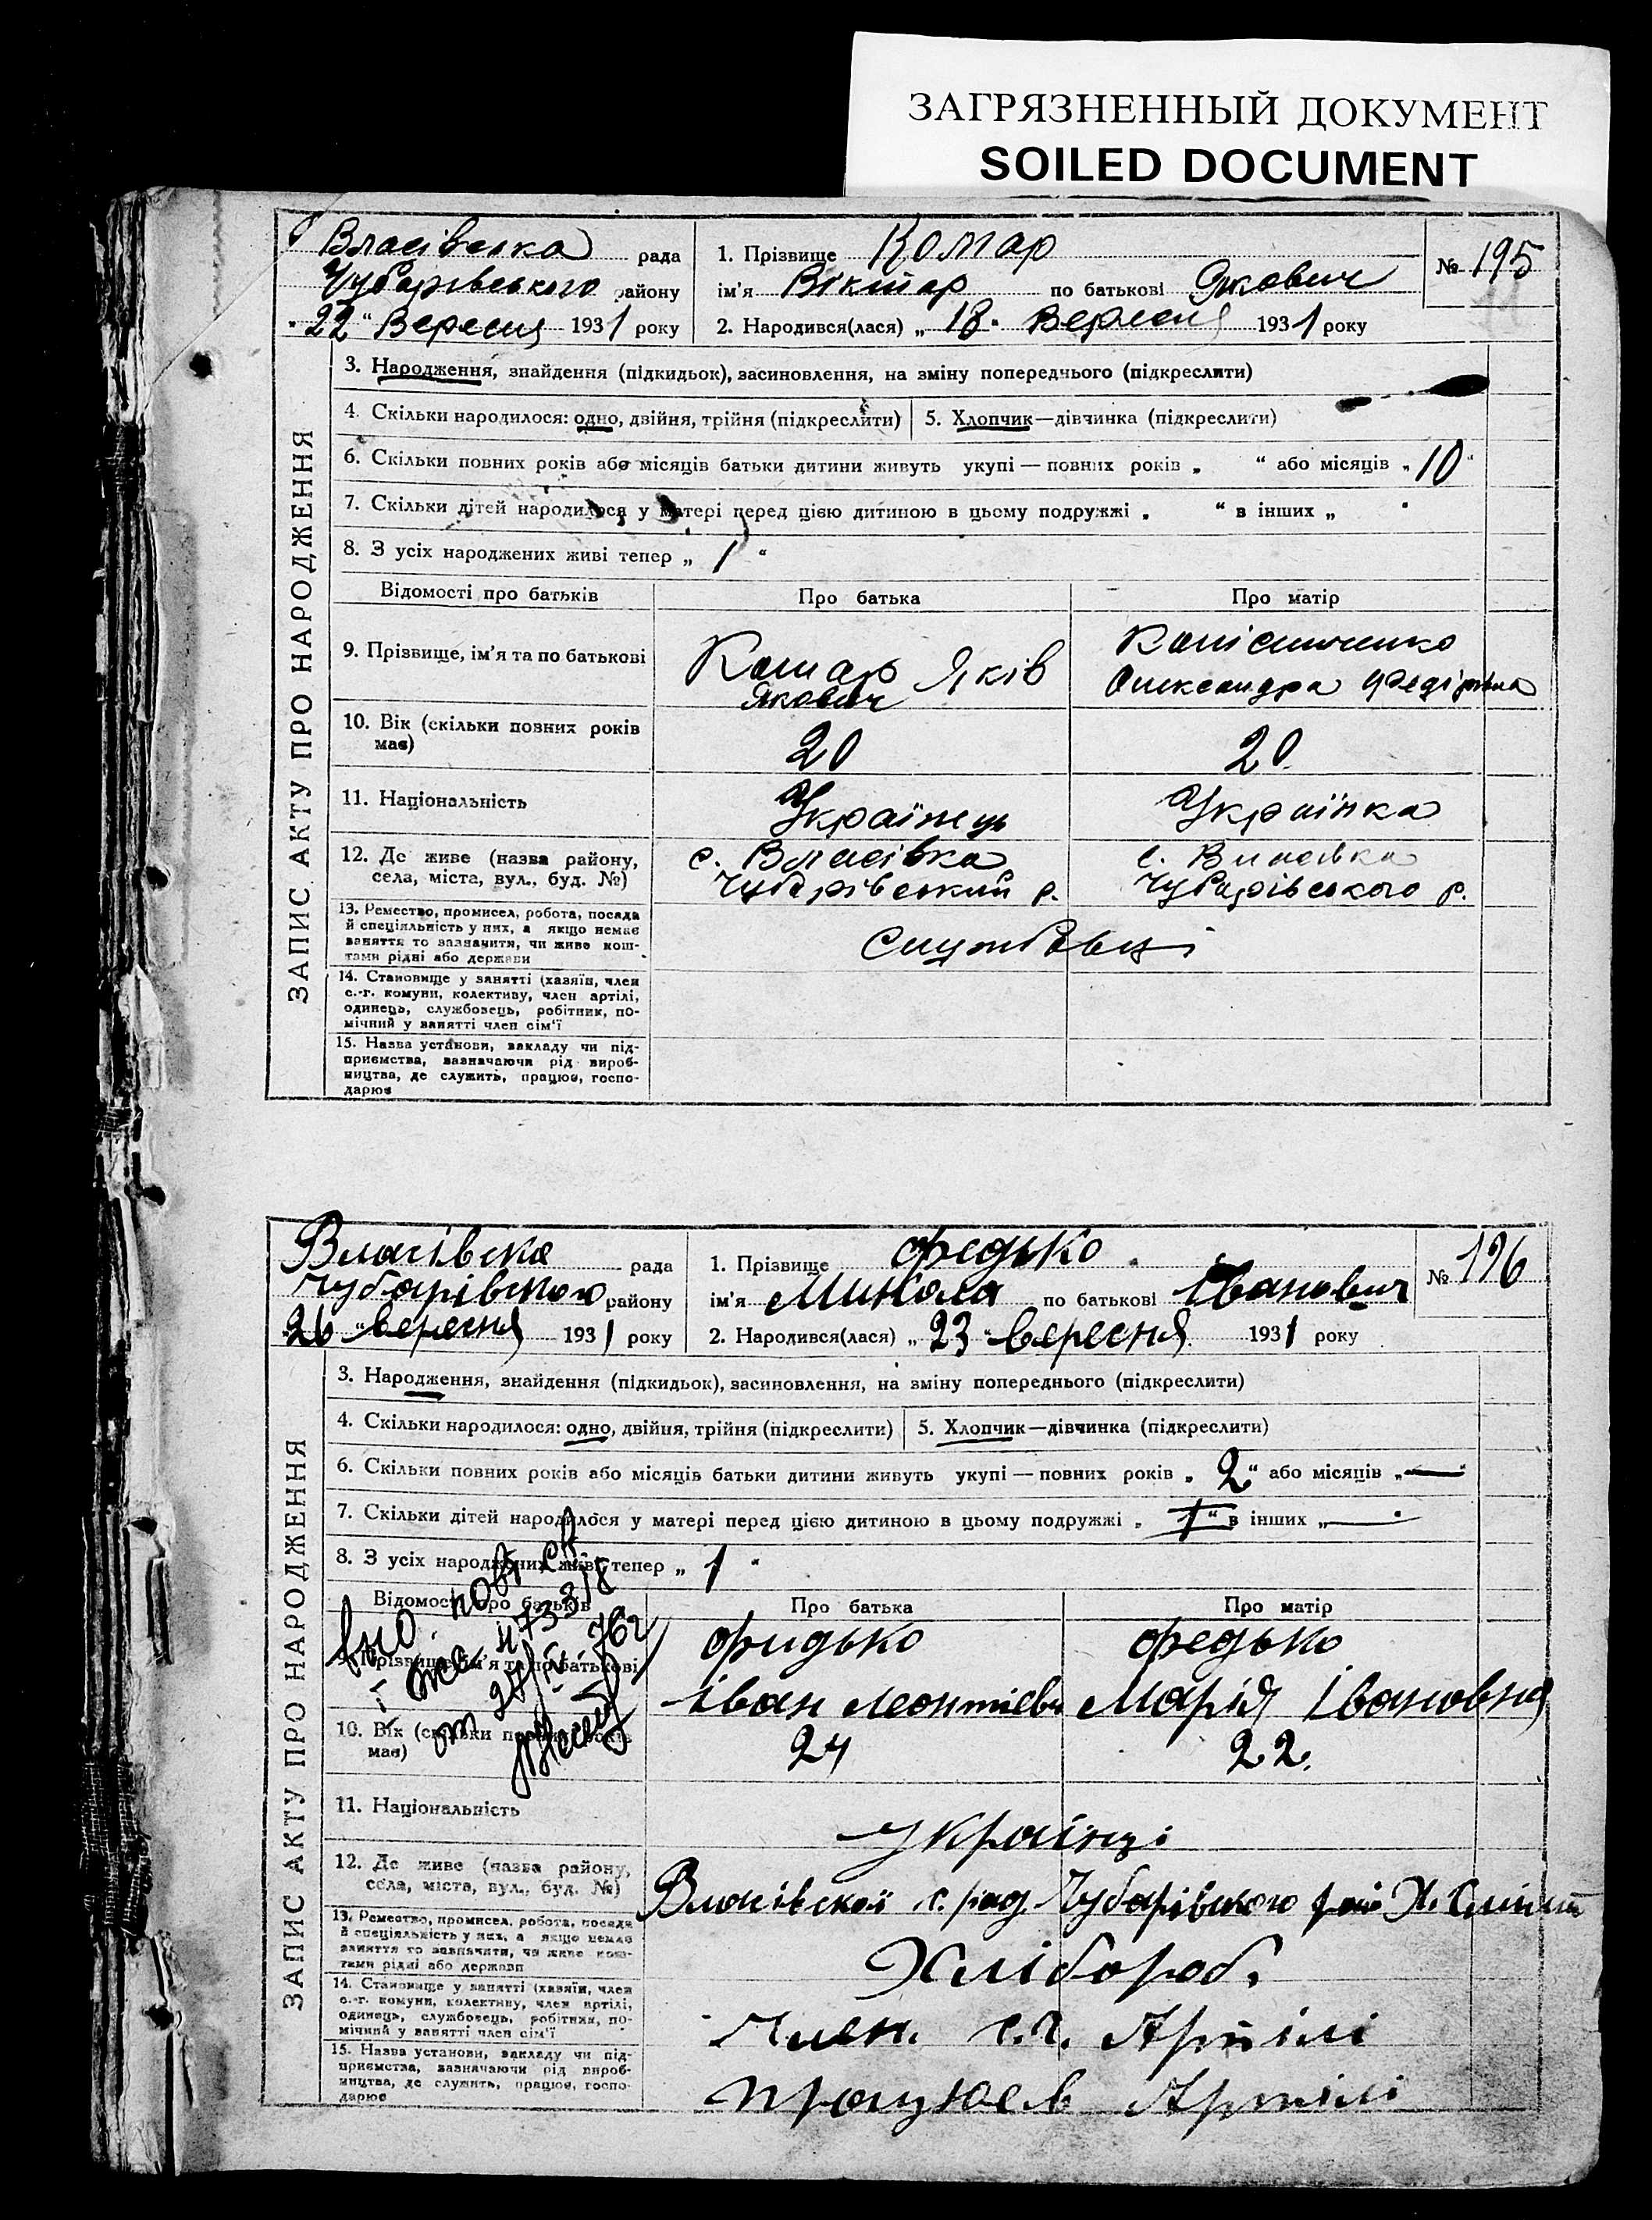 ЗАГРЯЗНЕННЫЙ ДОКУМЕНТ
SOILED DOCUMENT
ЗАПИС АКТУ ПРО НАРОДЖЕННЯ
Власівська рада
Чубарівського району
„22“ Вересня 1931 року
1. Прізвище Комар
ім'я Віктор по батькові Якович
2. Народився(лася) „18“ Вересня 1931 року
№ 195
3. Народження, знайдення (підкидьок), засиновлення, на зміну попереднього (підкреслити)
4. Скільки народилося: одно, двійня, трійня (підкреслити) 5. Хлопчик—дівчинка (підкреслити)
6. Скільки повних років або місяців батьки дитини живуть укупі — повних років „ “ або місяців „10“
7. Скільки дітей народилося у матері перед цією дитиною в цьому подружжі „ “ в інших „ “
8. З усіх народжених живі тепер „1“
Відомості про батьків Про батька Про матір
9. Прізвище, ім'я та по батькові
Комар Яків
Якович
Олександра Федірівна
10. Вік (скільки повних років
має)
20 20
11. Національність Українець Українка
12. Де живе (назва району,
села, міста, вул., буд. №)
с. Власівка
Чубарівський р.
с. Власівка
Чубарівського р.
13. Ремество, промисел, робота, посада
й спеціяльність у них, а якщо немає
заняття то зазначити, чи живе кош-
тами рідні або держави
Службовці
14. Становище у занятті (хазяїн, член
с.-г. комуни, колективу, член артілі,
одинець, службовець, робітник, по-
мічний у занятті член сім'ї
15. Назва установи, закладу чи під-
приємства, зазначаючи рід вироб-
ництва, де служить, працює, госпо-
дарює
ЗАПИС АКТУ ПРО НАРОДЖЕННЯ
Власівска рада
Чубарівского району
26 вересня 1931 року
1. Прізвище Федько
ім'я Микола по батькові Іванович
2. Народився(лася) „23“ вересня 1931 року
№ 196
3. Народження, знайдення (підкидьок), засиновлення, на зміну попереднього (підкреслити)
4. Скільки народилося: одно, двійня, трійня (підкреслити) 5. Хлопчик—дівчинка (підкреслити)
6. Скільки повних років або місяців батьки дитини живуть укупі — повних років „2“ або місяців „—“
7. Скільки дітей народилося у матері перед цією дитиною в цьому подружжі „1“ в інших „—“
8. З усіх народжених живі тепер „1“
Відомості про батьків Про батька Про матір
Прізвище, ім'я та по батькові
Фидько
Іван Леонтієв
Федько
Марія Івановна
10. Вік (скільки повних років
має)
24 22.
11. Національність
Українці
12. Де живе (назва району,
села, міста, вул., буд. №)
Власівскої с. рад Чубарівского
13. Ремество, промисел, робота, посада
й спеціяльність у них, а якщо немає
заняття то зазначити, чи живе кош-
тами рідні або держави
Хлібороб.
14. Становище у занятті (хазяїн, член
с.-г. комуни, колективу, член артілі,
одинець, службовець, робітник, по-
мічний у занятті член сім'ї
Член. с.г. Артілі
15. Назва установи, закладу чи під-
приємства, зазначаючи рід вироб-
ництва, де служить, працює, госпо-
дарює
Працює в Артілі